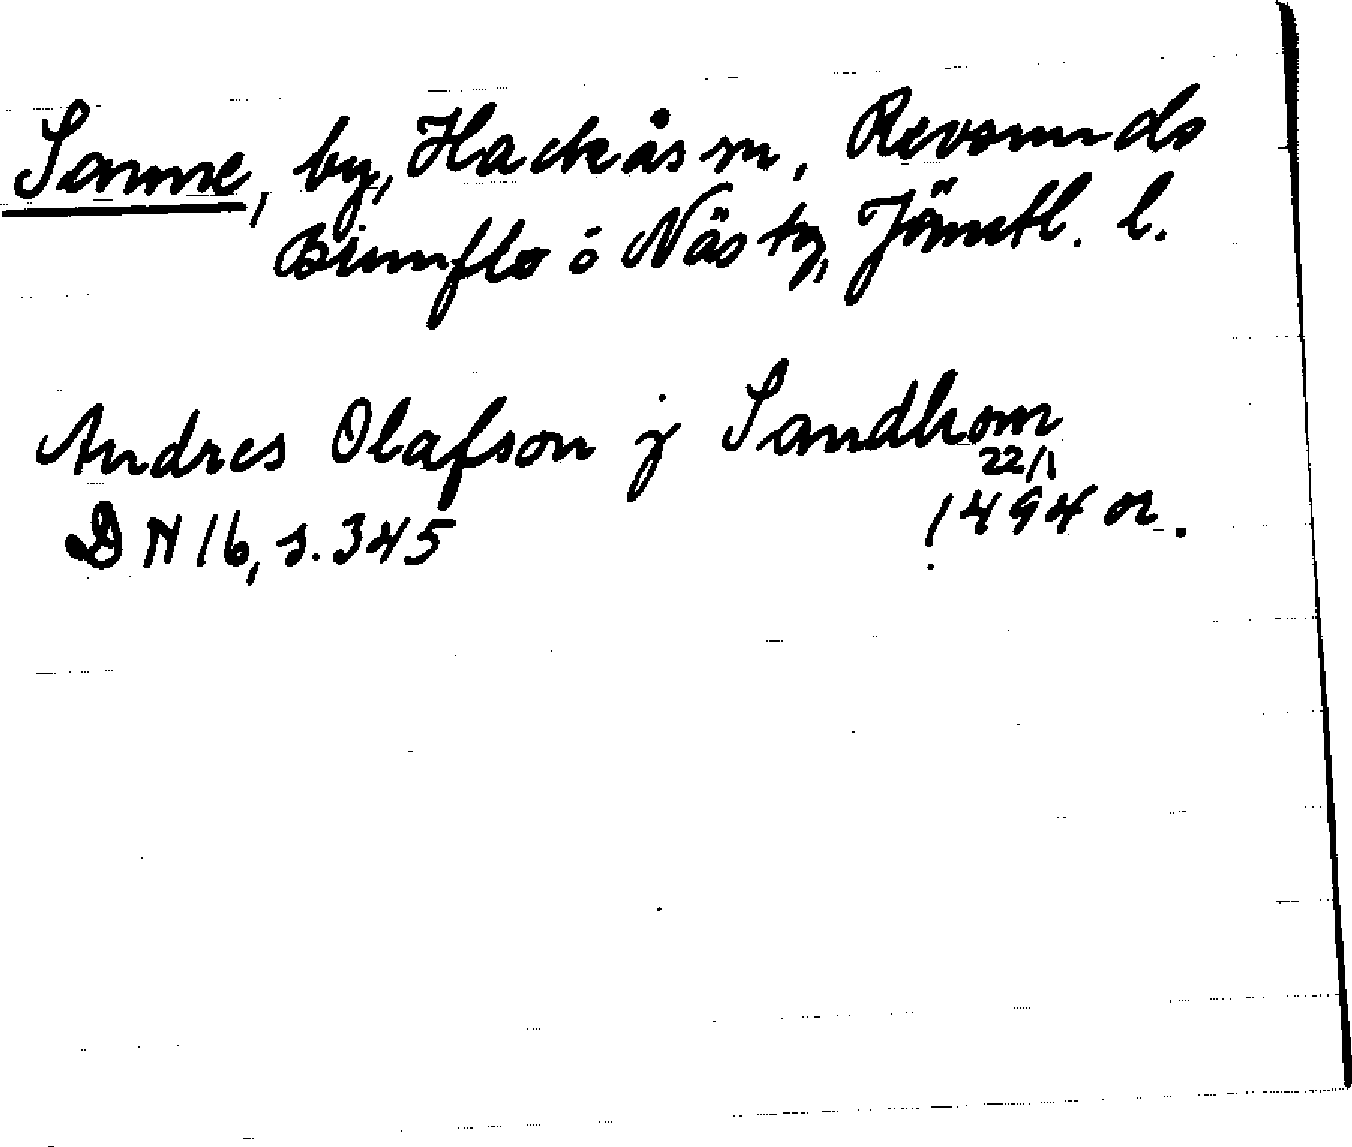 Sanne, by, Hackås sn, Revsunds
Brunflo o Näs tg, Jämtl. l.
Andres Olafson j Sandhom
22/1
DN 16, s. 345 1494 or.